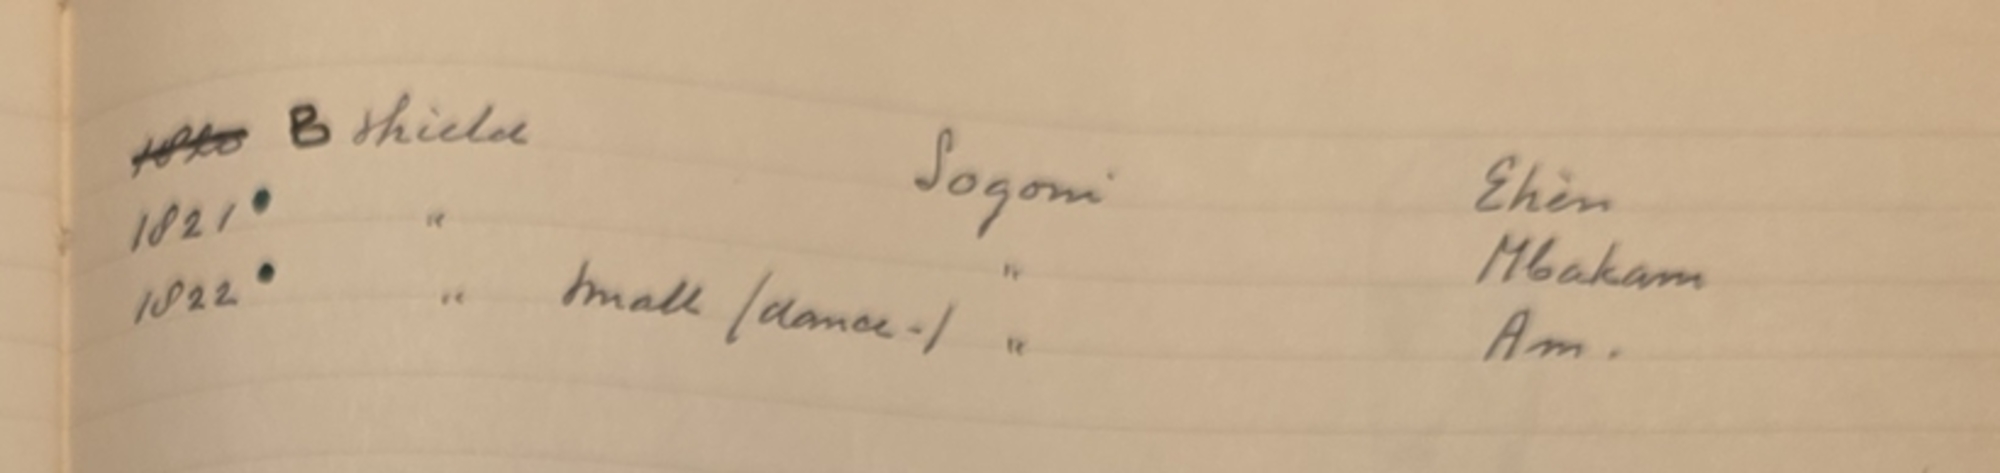 1820 B shield Sogoni Ehèn
1821 • " " Mbakam
1822 • " small /dance-/ " Am.